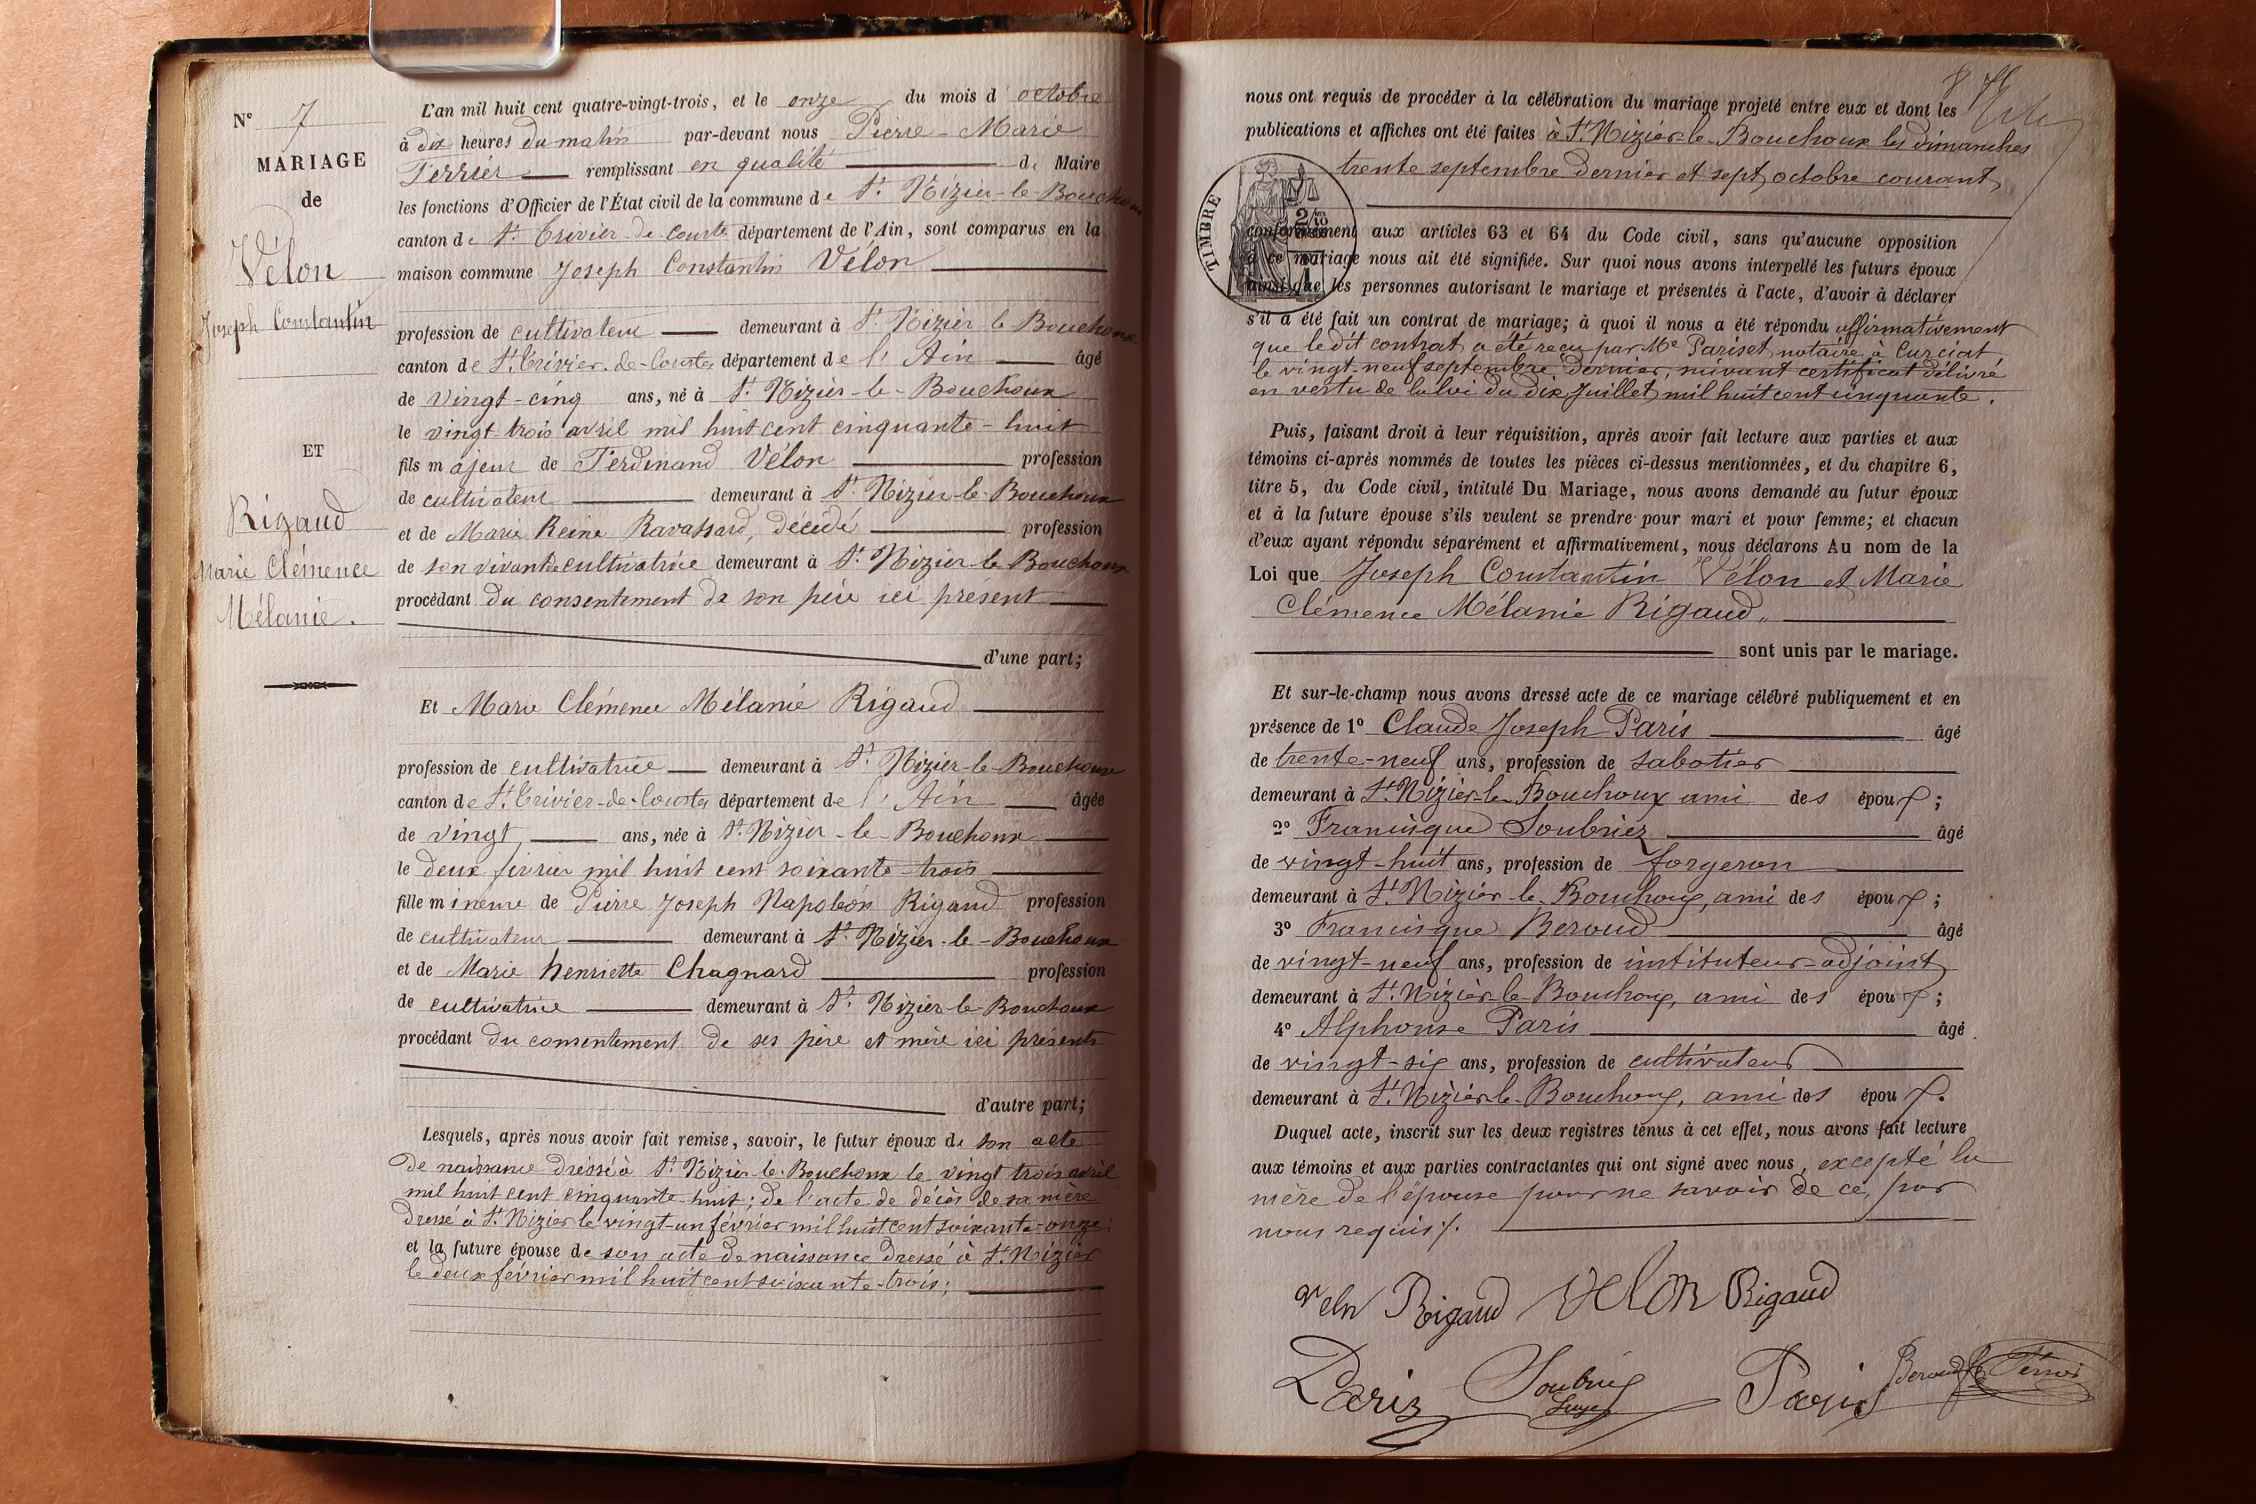 N° 7
MARIAGE
de
Vélon
Joseph Constantin
ET
Rigaud
Marie Clémence
Mélanie.
L'an mil huit cent quatre-vingt-trois, et le onze du mois d'octobre
à dix heures du matin par-devant nous Pierre-Marie
Terrier remplissant en qualité de Maire
les fonctions d'Officier de l'État civil de la commune de St Nizier-le-Bouchoux
canton de St Trivier-de-Courtes département de l'Ain, sont comparus en la
maison commune Joseph Constantin Vélon
profession de cultivateur demeurant à St Nizier-le-Bouchoux
canton de St Trivier-de-Courtes département de l'Ain âgé
de vingt-cinq ans, né à St Nizier-le-Bouchoux
le vingt-trois avril mil huit cent cinquante-huit
fils majeur de Ferdinand Vélon profession
de cultivateur demeurant à St Nizier-le-Bouchoux
et de Marie Reine Ravassard, décédé profession
de son vivant cultivatrice demeurant à St Nizier-le-Bouchoux
procédant du consentement de son père ici présent
d'une part;
Et Marie Clémence Mélanie Rigaud
profession de cultivatrice demeurant à St Nizier-le-Bouchoux
canton de St Trivier-de-Courtes département de l'Ain âgée
de vingt ans, née à St Nizier-le-Bouchoux
le deux février mil huit cent soixante-trois
fille mineure de Pierre Joseph Napoléon Rigaud profession
de cultivateur demeurant à St Nizier-le-Bouchoux
et de Marie henriette Chagnard profession
de cultivatrice demeurant à St Nizier-le-Bouchoux
procédant du consentement de ses père et mère ici présents
d'autre part;
Lesquels, après nous avoir fait remise, savoir, le futur époux de son acte
de naissance dressé à St Nizier-le-Bouchoux le vingt trois avril
mil huit cent cinquante-huit; de l'acte de décès de sa mère
dressé à St Nizier le vingt-un février mil huit cent soixante-onze;
et la future épouse de son acte de naissance dressé à St Nizier
le deux février mil huit cent soixante-trois;
nous ont requis de procéder à la célébration du mariage projeté entre eux et dont les
publications et affiches ont été faites à St Nizier-le-Bouchoux les dimanches
trente septembre dernier et sept octobre courant,
TIMBRE
conformément aux articles 63 et 64 du Code civil, sans qu'aucune opposition
à ce mariage nous ait été signifiée. Sur quoi nous avons interpellé les futurs époux
ainsi que les personnes autorisant le mariage et présentés à l'acte, d'avoir à déclarer
s'il a été fait un contrat de mariage; à quoi il nous a été répondu affirmativement
que le dit contrat a été reçu par Me Pariset, notaire à Curciat
le vingt-neuf septembre dernier, suivant certificat délivré
en vertu de la loi du dix Juillet mil huit cent cinquante.
Puis, faisant droit à leur réquisition, après avoir fait lecture aux parties et aux
témoins ci-après nommés de toutes les pièces ci-dessus mentionnées, et du chapitre 6,
titre 5, du Code civil, intitulé Du Mariage, nous avons demandé au futur époux
et à la future épouse s'ils veulent se prendre pour mari et pour femme; et chacun
d'eux ayant répondu séparément et affirmativement, nous déclarons Au nom de la
Loi que Joseph Constantin Vélon et Marie
Clémence Mélanie Rigaud,
sont unis par le mariage.
Et sur-le-champ nous avons dressé acte de ce mariage célébré publiquement et en
présence de 1° Claude Joseph Paris âgé
de trente-neuf ans, profession de sabotier
demeurant à St Nizier-le-Bouchoux ami des époux;
2° Francisque Soubriez âgé
de vingt-huit ans, profession de forgeron
demeurant à St Nizier-le-Bouchoux, ami des époux;
3° Francisque Beroud âgé
de vingt-neuf ans, profession de instituteur-adjoint
demeurant à St Nizier-le-Bouchoux, ami des époux;
4° Alphonse Paris âgé
de vingt-six ans, profession de cultivateur
demeurant à St Nizier-le-Bouchoux, ami des époux.
Duquel acte, inscrit sur les deux registres tenus à cet effet, nous avons fait lecture
aux témoins et aux parties contractantes qui ont signé avec nous, excepté la
mère de l'épouse pour ne savoir de ce, par
nous requis.
veln Rigaud Velon Rigaud
Pariz Soubriez Paris Beroud Terrier